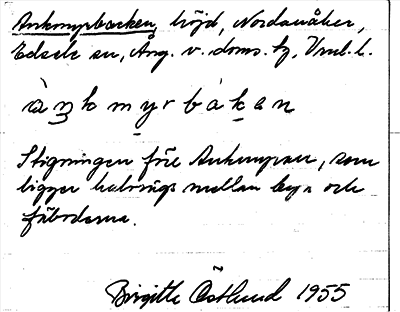 Ankmyrbacken, höjd, Nordanåker,
Edsele sn, Ång. v. doms. tg, Vnrl. l.
à ŋ k m y r b a k a n
Stigningen före Ankmyran, som
ligger halvvägs mellan byn och
fäbodarna.
Birgitta Östlund 1955